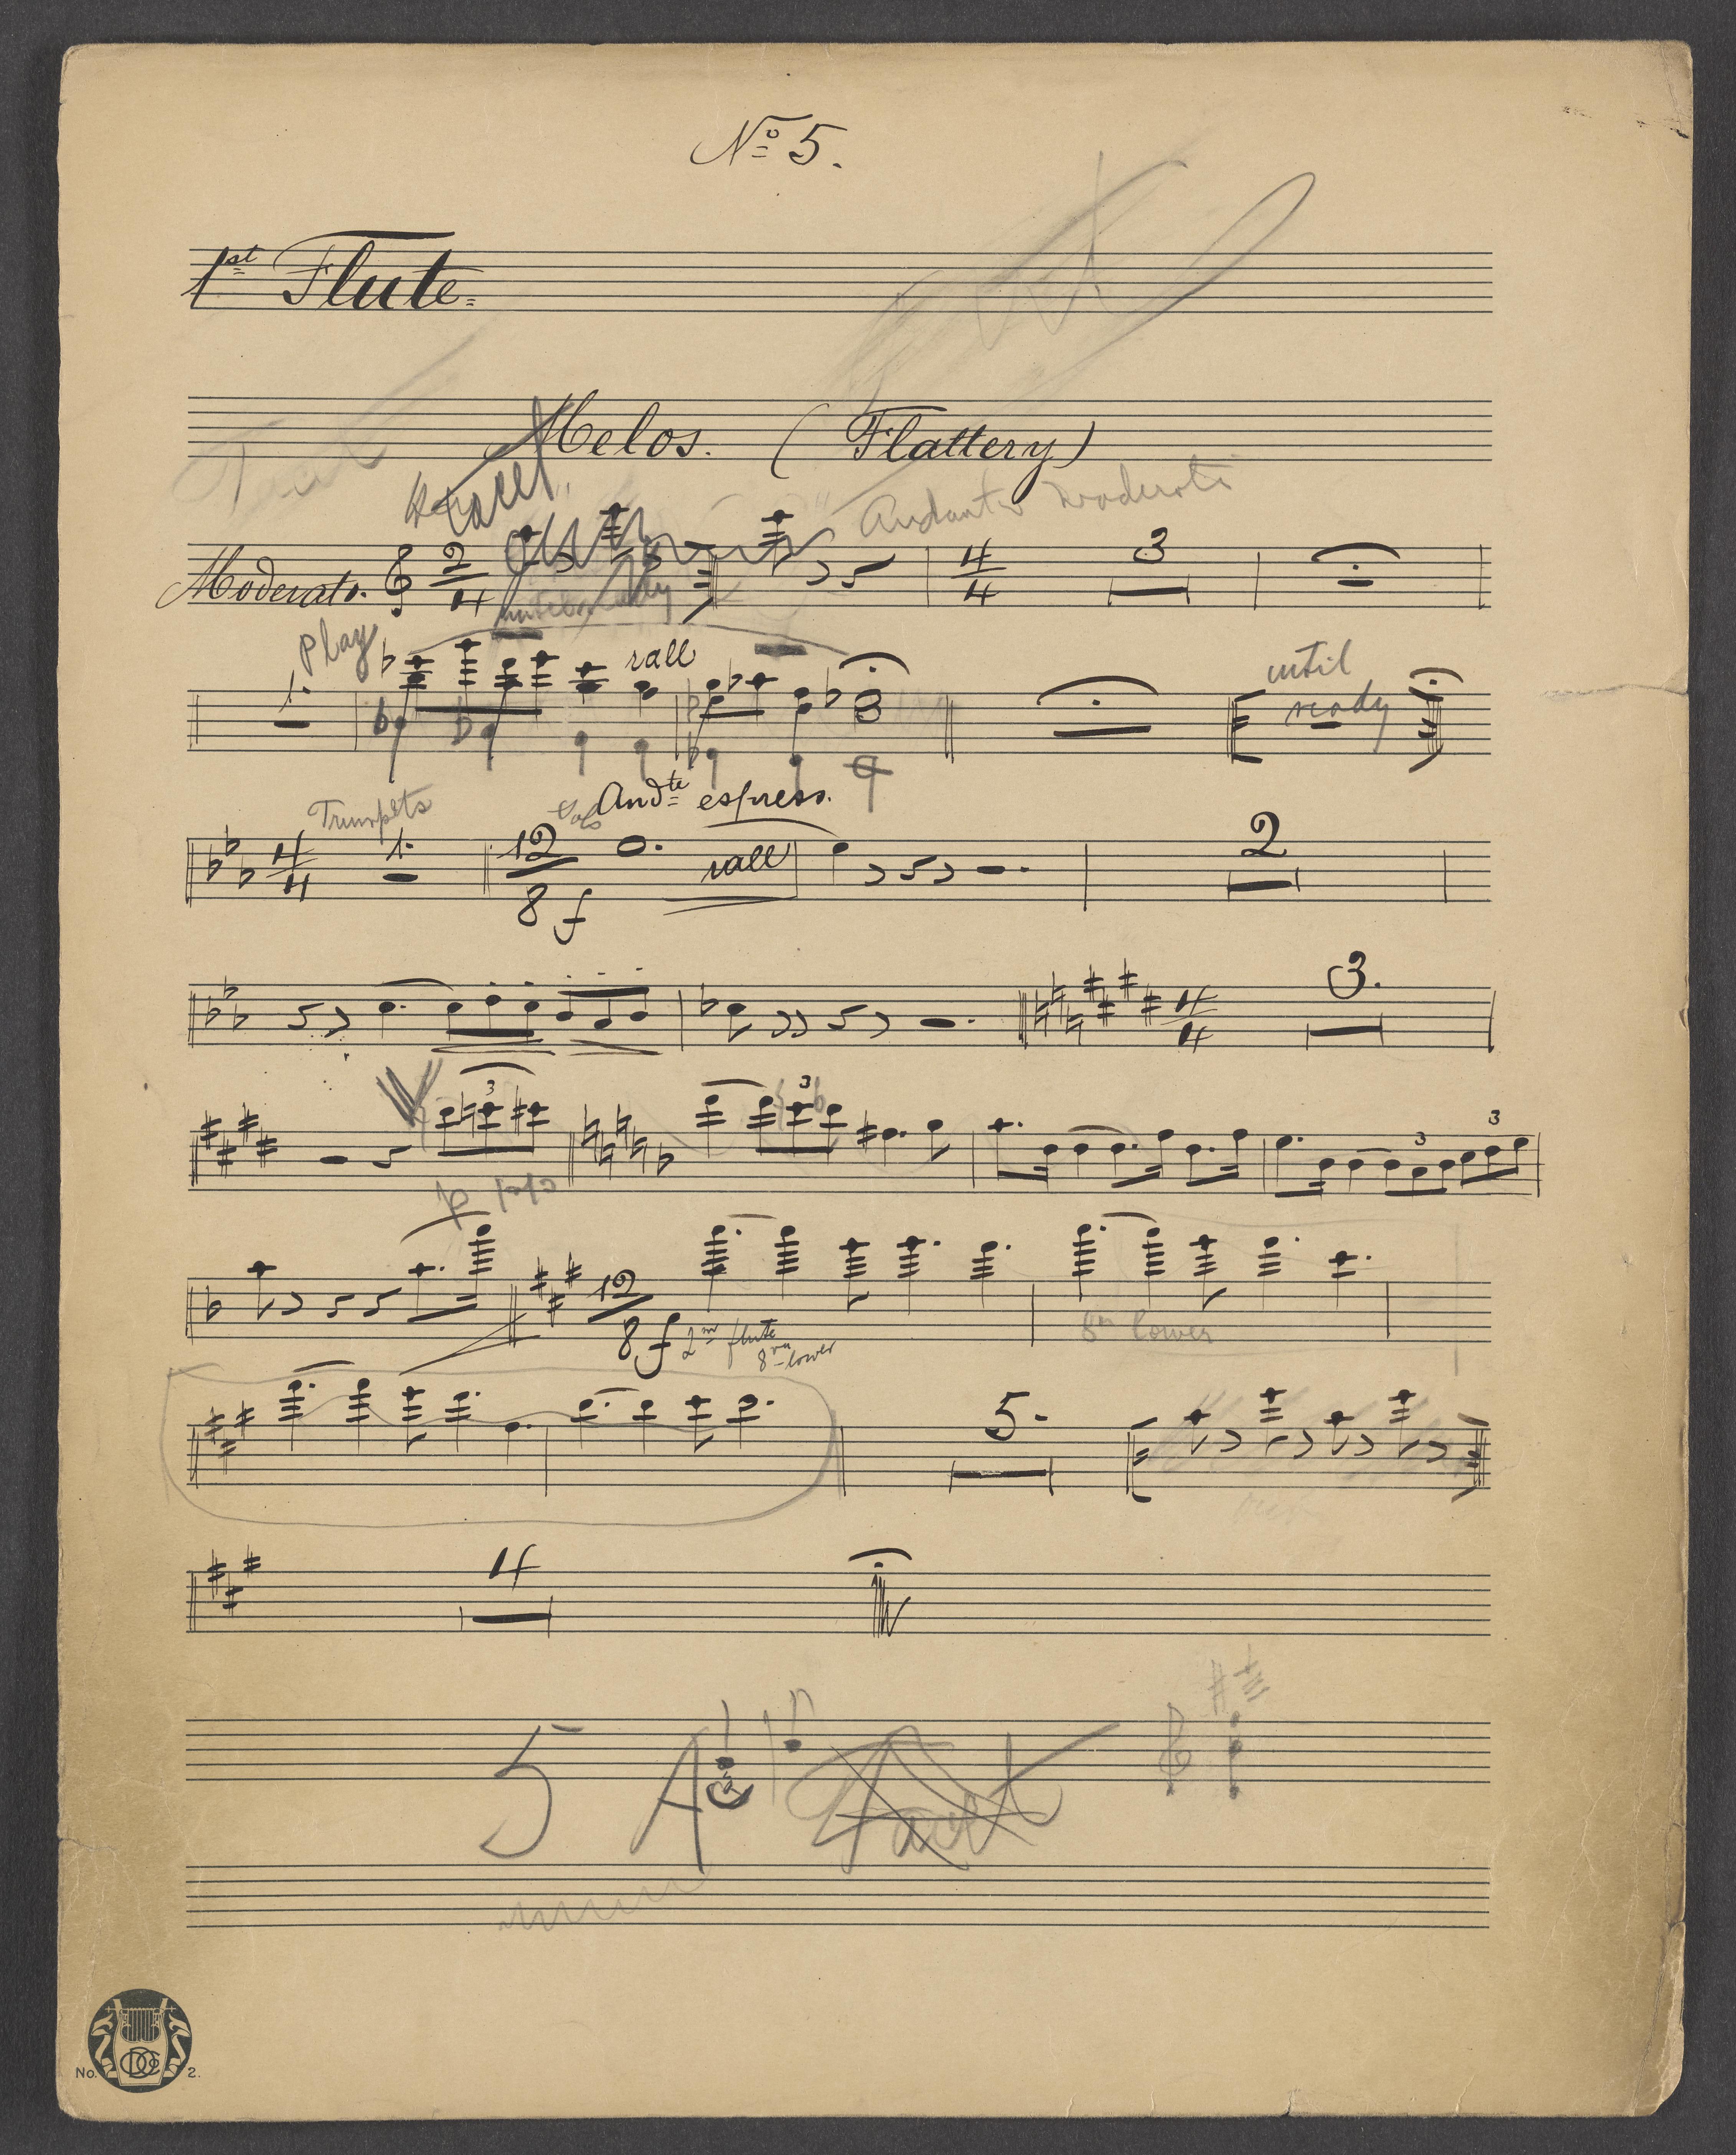 No 5.
1st Flute.
Melos. (Flattery)
Tacet
Andante moderato
Moderato. 2/4 4/4 3
until ready
Play rall until ready
1.
Andte espress.
Trumpets Solo
4/4 1. 12/8 f rall 2
4/4 3.
3 3 3 3
p
12/8 f 2nd flute 8va lower 8va lower
5.
4
5 A Tacet
No. 2.